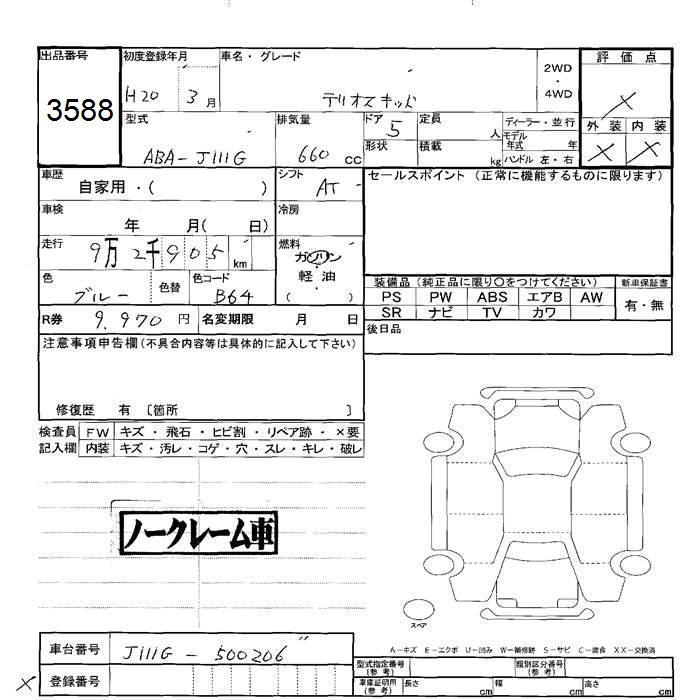 出品番号 初度登録年月 車名・グレード 2WD・4WD 評価点
3588 H20 3月 テリオスキッド X
型式 排気量 ドア 5 定員 人 ディーラー・並行 外装 内装
ABA-J111G 660cc 形状 積載 kg モデル年式 年 X X
ハンドル 左・右
車歴 自家用・( ) シフト AT セールスポイント (正常に機能するものに限ります)
車検 年 月( 日) 冷房
走行 9万2千905km 燃料 ガソリン・軽油 ( )
色 ブルー 色替 色コード B64
装備品 (純正品に限り〇をつけてください) 新車保証書
PS PW ABS エアB AW 有・無
SR ナビ TV カワ
R券 9,970円 名変期限 月 日 後日品
注意事項申告欄(不具合内容等は具体的に記入して下さい)
修復歴 有 〔箇所 〕
検査員 FW キズ・飛石・ヒビ割・リペア跡・×要
記入欄 内装 キズ・汚レ・コゲ・穴・スレ・キレ・破レ
ノークレーム車
スペア
A-キズ E-エクボ U-凹み W-補修跡 S-サビ C-腐食 XX-交換済
車台番号 J111G-500206〃
型式指定番号(参考) 類別区分番号(参考)
X 登録番号
車庫証明用(参考) 長さ cm 幅 cm 高さ cm